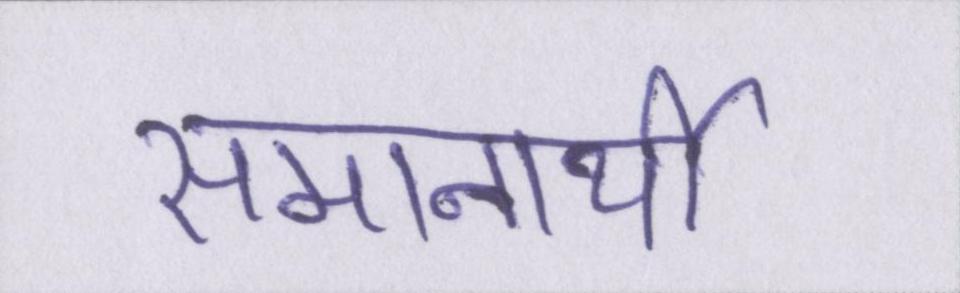 समानार्थी